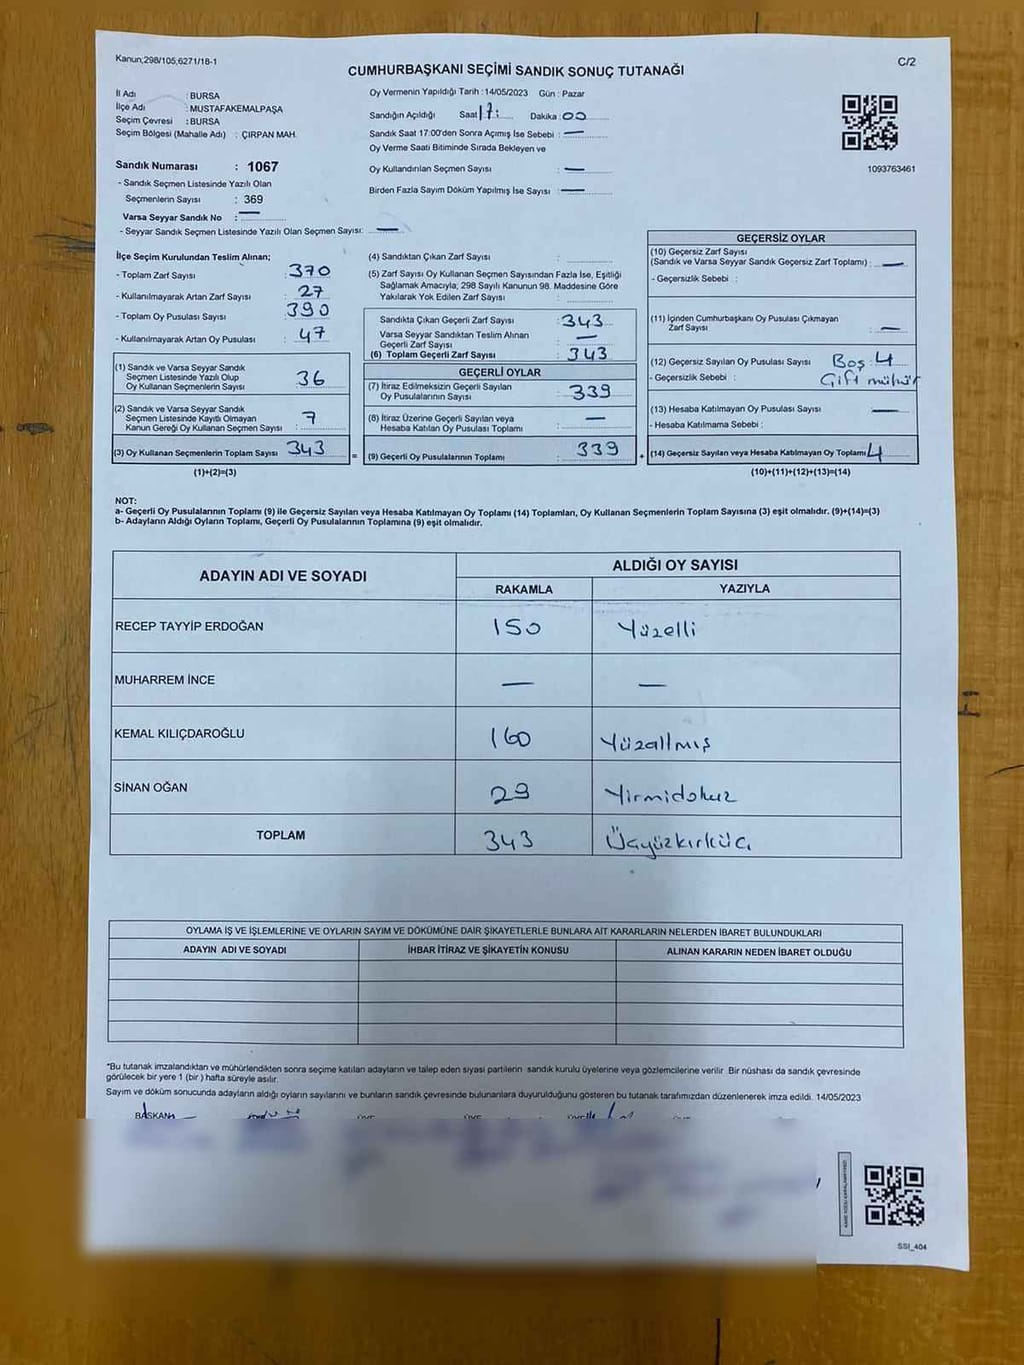 Kanun;298/105,6271/18-1
C/2
CUMHURBAŞKANI SEÇİMİ SANDIK SONUÇ TUTANAĞI
İl Adı : BURSA
İlçe Adı : MUSTAFAKEMALPAŞA
Seçim Çevresi : BURSA
Seçim Bölgesi (Mahalle Adı) : ÇIRPAN MAH.
Sandık Numarası : 1067
- Sandık Seçmen Listesinde Yazılı Olan
Seçmenlerin Sayısı : 369
Varsa Seyyar Sandık No : —
- Seyyar Sandık Seçmen Listesinde Yazılı Olan Seçmen Sayısı: —
Oy Vermenin Yapıldığı Tarih : 14/05/2023 Gün : Pazar
Sandığın Açıldığı Saat 17: Dakika : 00
Sandık Saat 17:00'den Sonra Açımış İse Sebebi : —
Oy Verme Saati Bitiminde Sırada Bekleyen ve
Oy Kullandırılan Seçmen Sayısı : —
Birden Fazla Sayım Döküm Yapılmış İse Sayısı : —
1093763461
İlçe Seçim Kurulundan Teslim Alınan;
- Toplam Zarf Sayısı : 370
- Kullanılmayarak Artan Zarf Sayısı : 27
- Toplam Oy Pusulası Sayısı : 390
- Kullanılmayarak Artan Oy Pusulası : 47
(1) Sandık ve Varsa Seyyar Sandık
Seçmen Listesinde Yazılı Olup
Oy Kullanan Seçmenlerin Sayısı : 36
(2) Sandık ve Varsa Seyyar Sandık
Seçmen Listesinde Kayıtlı Olmayan
Kanun Gereği Oy Kullanan Seçmen Sayısı : 7
(3) Oy Kullanan Seçmenlerin Toplam Sayısı 343
(1)+(2)=(3)
(4) Sandıktan Çıkan Zarf Sayısı :
(5) Zarf Sayısı Oy Kullanan Seçmen Sayısından Fazla İse, Eşitliği
Sağlamak Amacıyla; 298 Sayılı Kanunun 98. Maddesine Göre
Yakılarak Yok Edilen Zarf Sayısı :
Sandıkta Çıkan Geçerli Zarf Sayısı : 343
Varsa Seyyar Sandıktan Teslim Alınan
Geçerli Zarf Sayısı : —
(6) Toplam Geçerli Zarf Sayısı : 343
GEÇERLİ OYLAR
(7) İtiraz Edilmeksizin Geçerli Sayılan
Oy Pusulalarının Sayısı : 339
(8) İtiraz Üzerine Geçerli Sayılan veya
Hesaba Katılan Oy Pusulası Toplamı : —
= (9) Geçerli Oy Pusulalarının Toplamı : 339 +
GEÇERSİZ OYLAR
(10) Geçersiz Zarf Sayısı
(Sandık ve Varsa Seyyar Sandık Geçersiz Zarf Toplamı) : —
- Geçersizlik Sebebi :
(11) İçinden Cumhurbaşkanı Oy Pusulası Çıkmayan
Zarf Sayısı : —
(12) Geçersiz Sayılan Oy Pusulası Sayısı : Boş 4
- Geçersizlik Sebebi : Çift mühür
(13) Hesaba Katılmayan Oy Pusulası Sayısı : —
- Hesaba Katılmama Sebebi :
(14) Geçersiz Sayılan veya Hesaba Katılmayan Oy Toplamı 4
(10)+(11)+(12)+(13)=(14)
NOT:
a- Geçerli Oy Pusulalarının Toplamı (9) ile Geçersiz Sayılan veya Hesaba Katılmayan Oy Toplamı (14) Toplamları, Oy Kullanan Seçmenlerin Toplam Sayısına (3) eşit olmalıdır. (9)+(14)=(3)
b- Adayların Aldığı Oyların Toplamı, Geçerli Oy Pusulalarının Toplamına (9) eşit olmalıdır.
ADAYIN ADI VE SOYADI
ALDIĞI OY SAYISI
RAKAMLA YAZIYLA
RECEP TAYYİP ERDOĞAN 150 Yüzelli
MUHARREM İNCE — —
KEMAL KILIÇDAROĞLU 160 Yüzaltmış
SİNAN OĞAN 29 Yirmidokuz
TOPLAM 343 Üçyüzkırküç
OYLAMA İŞ VE İŞLEMLERİNE VE OYLARIN SAYIM VE DÖKÜMÜNE DAİR ŞİKAYETLERLE BUNLARA AİT KARARLARIN NELERDEN İBARET BULUNDUKLARI
ADAYIN ADI VE SOYADI İHBAR İTİRAZ VE ŞİKAYETİN KONUSU ALINAN KARARIN NEDEN İBARET OLDUĞU
*Bu tutanak imzalandıktan ve mühürlendikten sonra seçime katılan adayların ve talep eden siyasi partilerin sandık kurulu üyelerine veya gözlemcilerine verilir Bir nüshası da sandık çevresinde
görülecek bir yere 1 (bir ) hafta süreyle asılır.
Sayım ve döküm sonucunda adayların aldığı oyların sayılarını ve bunların sandık çevresinde bulunanlara duyurulduğunu gösteren bu tutanak tarafımızdan düzenlenerek imza edildi. 14/05/2023
BAŞKAN
SSI_404